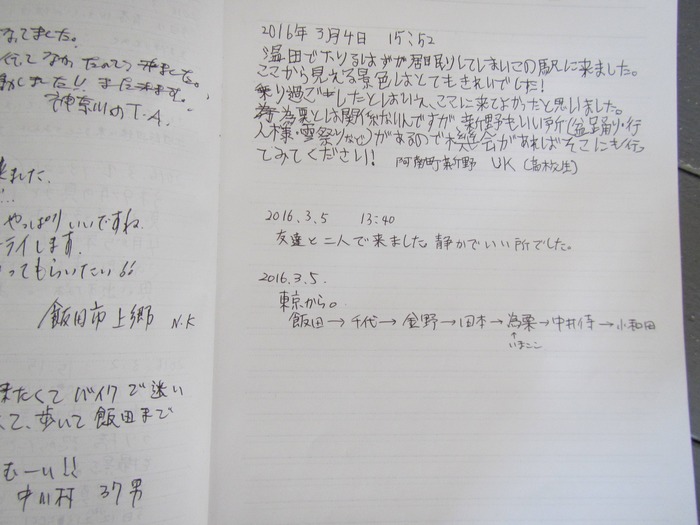 なてました。
行ってなかったので
した!! また来ます。
神奈川のT.A.
来ました.
やっぱりいいですね.
ライします.
ってもらいたい66
飯田市上郷 N.K
来たくてバイクで迷い
て、歩いて飯田まで
むーい!!
中川村 37 男
2016年3月4日 15:52
温田でおりるはずが居眠りしてしまいこの駅に来ました。
ここから見える景色はとてもきれいでした!
乗り過ごしたとはいえ、ここに来てよかったと思いました。
為栗とは関係ないんですが新野もいい所(盆踊り・行
人様・雪祭りなど)があるので機会があればそこにも行っ
てみてください! 阿南町新野 UK(高校生)
2016.3.5 13:40
友達と二人で来ました 静かでいい所でした。
2016.3.5.
東京から。
飯田→千代→金野→田本→為栗→中井侍→小和田
↑
いまここ